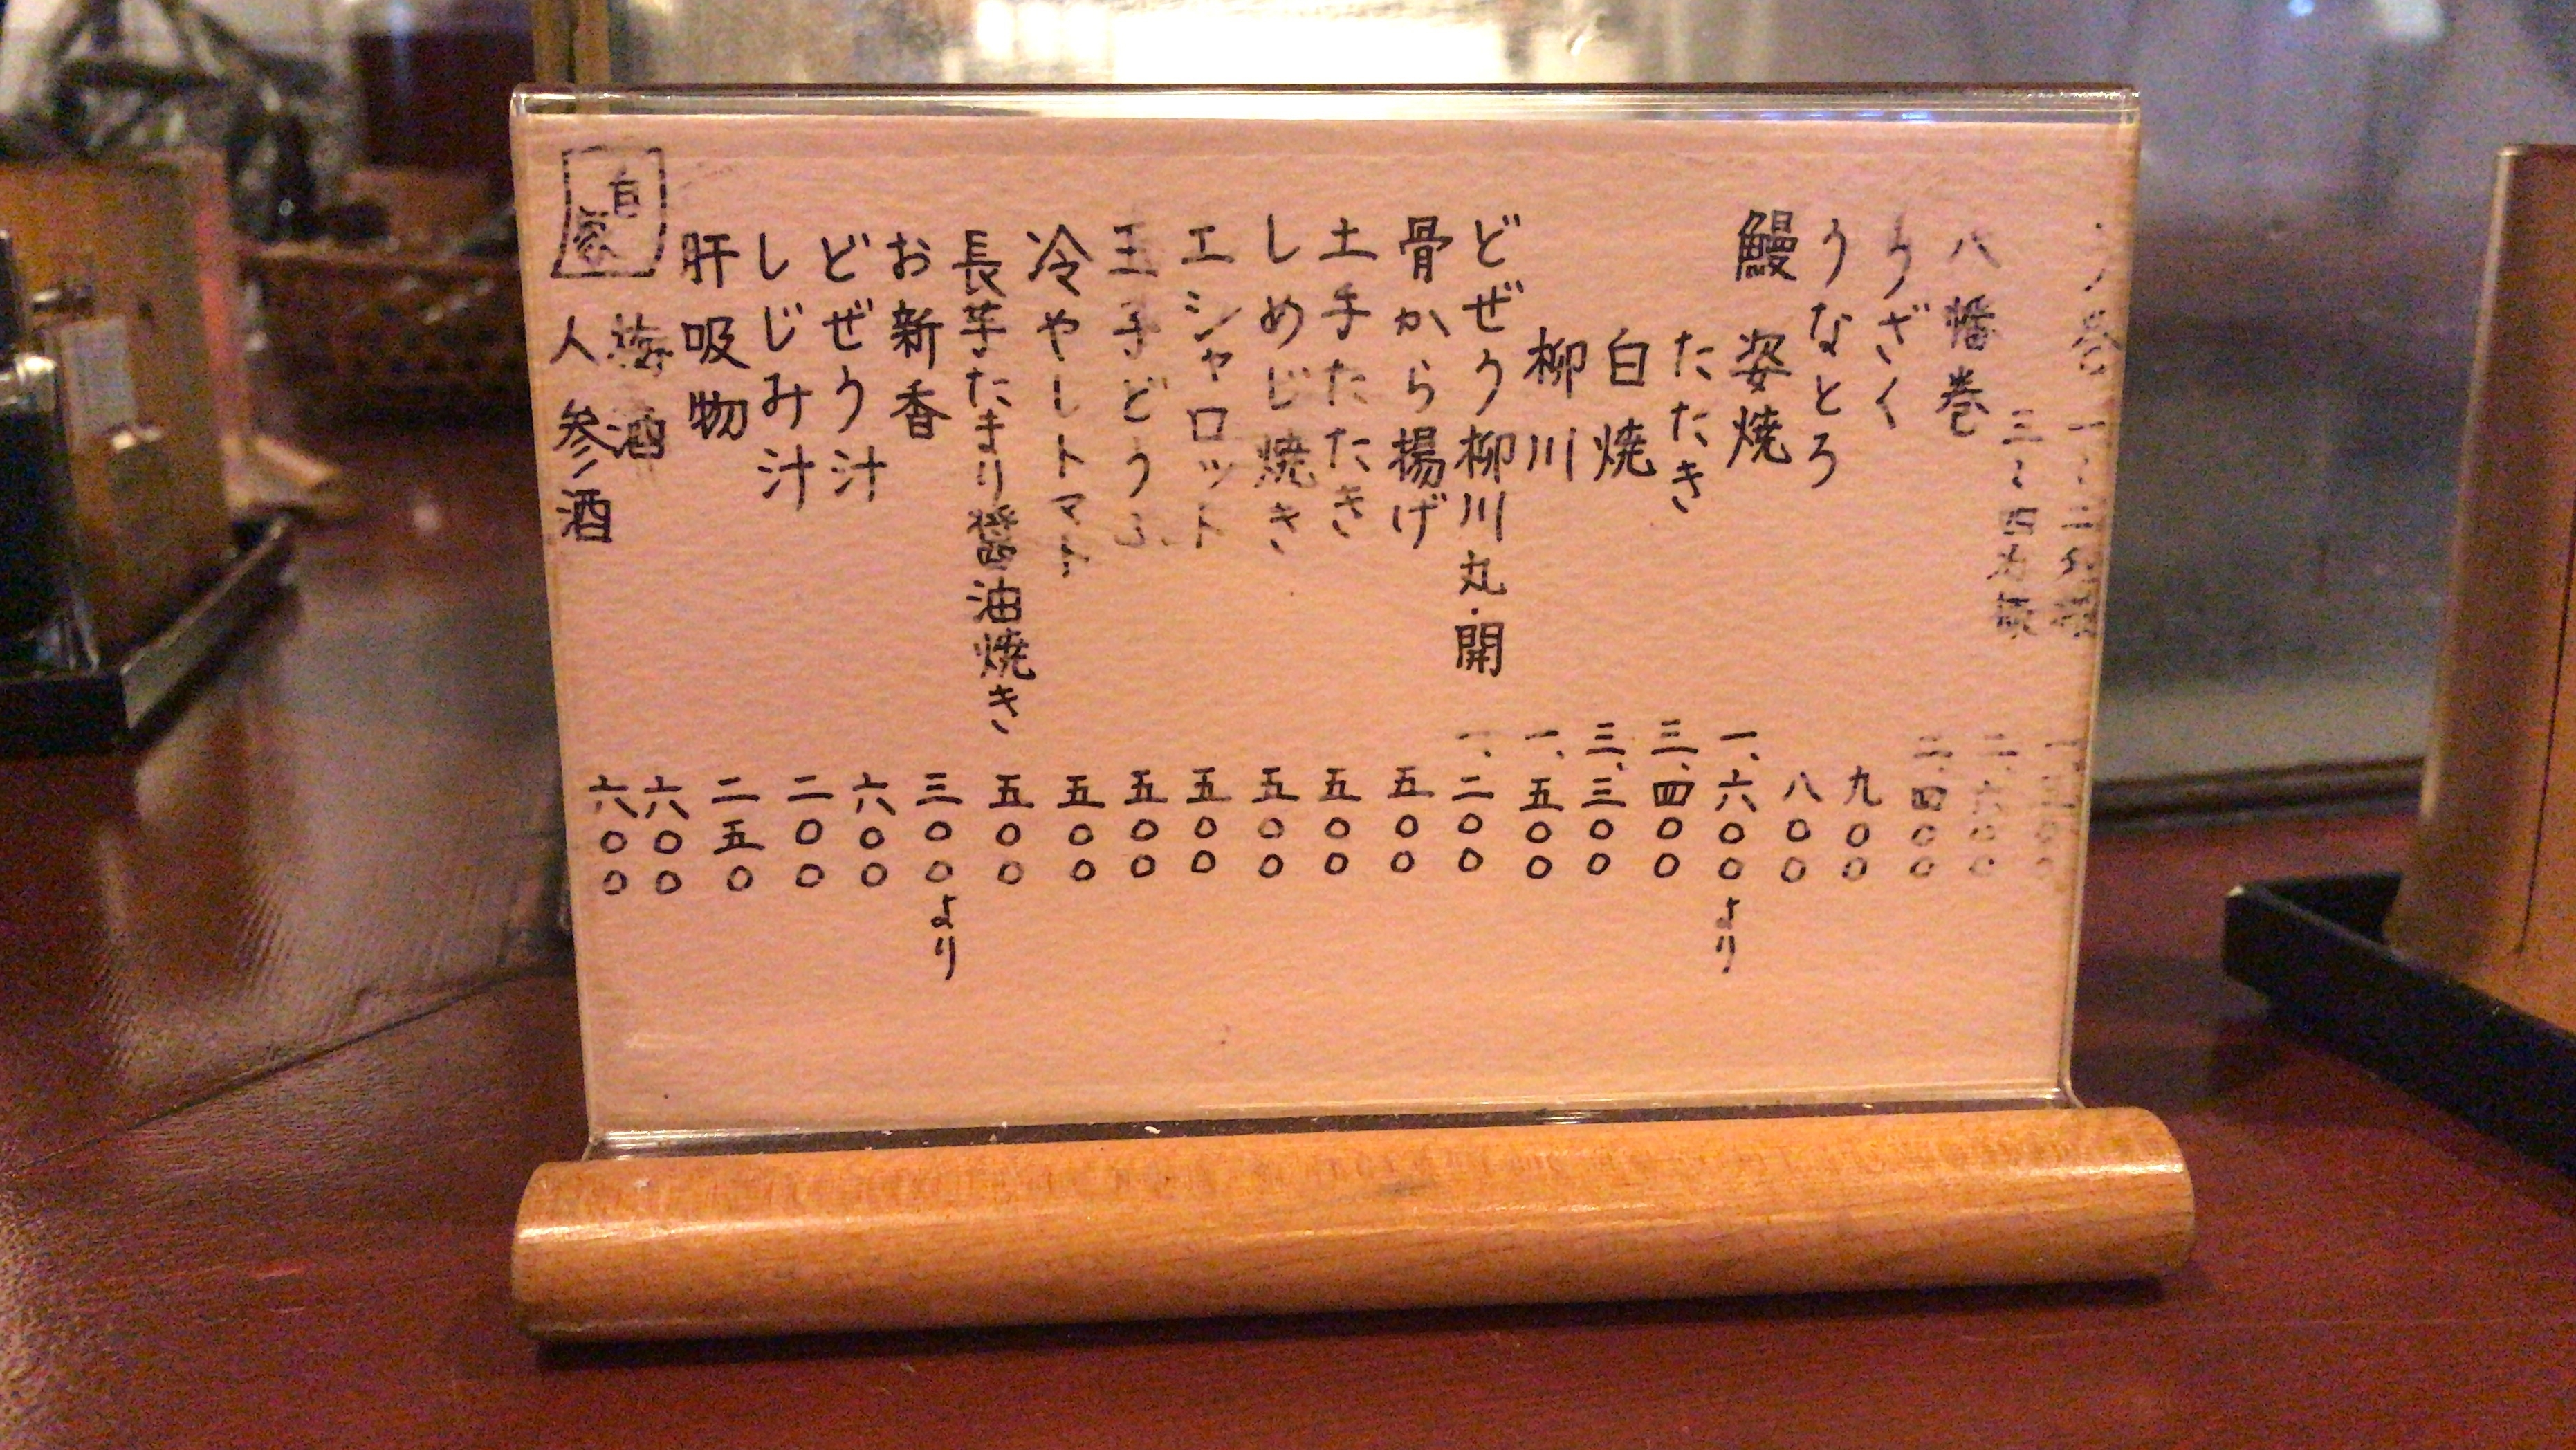 う巻 一〜二名様
三〜四名様 二、六〇〇
八幡巻 二、四〇〇
うざく 九〇〇
うなとろ 八〇〇
鰻 姿焼 一、六〇〇より
たたき 三、四〇〇
白焼 三、三〇〇
柳川 一、五〇〇
どぜう柳川 丸・開 一、二〇〇
骨から揚げ 五〇〇
土手たたき 五〇〇
しめじ焼き 五〇〇
エシャロット 五〇〇
玉子どうふ 五〇〇
冷やしトマト 五〇〇
長芋たまり醤油焼き 五〇〇
お新香 三〇〇より
どぜう汁 六〇〇
しじみ汁 二〇〇
肝吸物 二五〇
自家
梅酒 六〇〇
人参酒 六〇〇